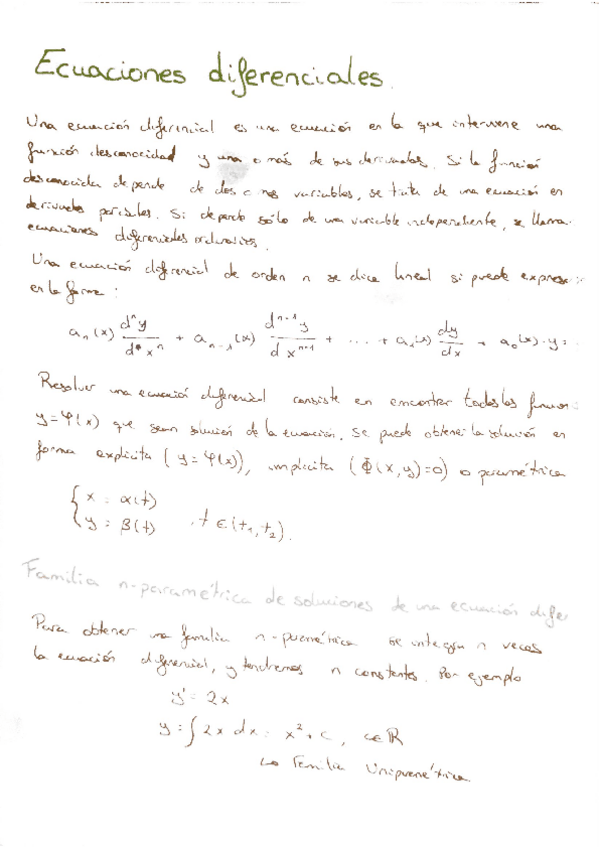 Ecuaciones diferenciales.
Una ecuación diferencial es una ecuación en la que interviene una
función desconocidad y una o más de sus derivadas. Si la función
desconocida depende de dos o mas variables, se trata de una ecuación en
derivadas parciales. Si depende sólo de una variable independiente, se llama
ecuaciones diferenciales ordinarias.
Una ecuación diferencial de orden n se dice lineal si puede
en la forma :
aₙ(x) dⁿy/dⁿxⁿ + aₙ₋₁(x) dⁿ⁻¹y/dxⁿ⁻¹ + ... + a₁(x) dy/dx + a₀(x)·y =
Resolver una ecuación diferencial consiste en encontrar todas las
y = φ(x) que sean solución de la ecuación. Se puede obtener la solución en
forma explícita ( y = φ(x)), implícita (Φ(x,y)=0) o paramétrica
{ x = α(t)
{ y = β(t) , t ∈ (t₁, t₂).
Familia n-paramétrica de soluciones de una ecuación difer
Para obtener una familia n-paramétrica se integra n veces
la ecuación diferencial, y tendremos n constantes. Por ejemplo
y' = 2x
y = ∫ 2x dx = x² + c, c∈ℝ
↳ Familia Uniparamétrica